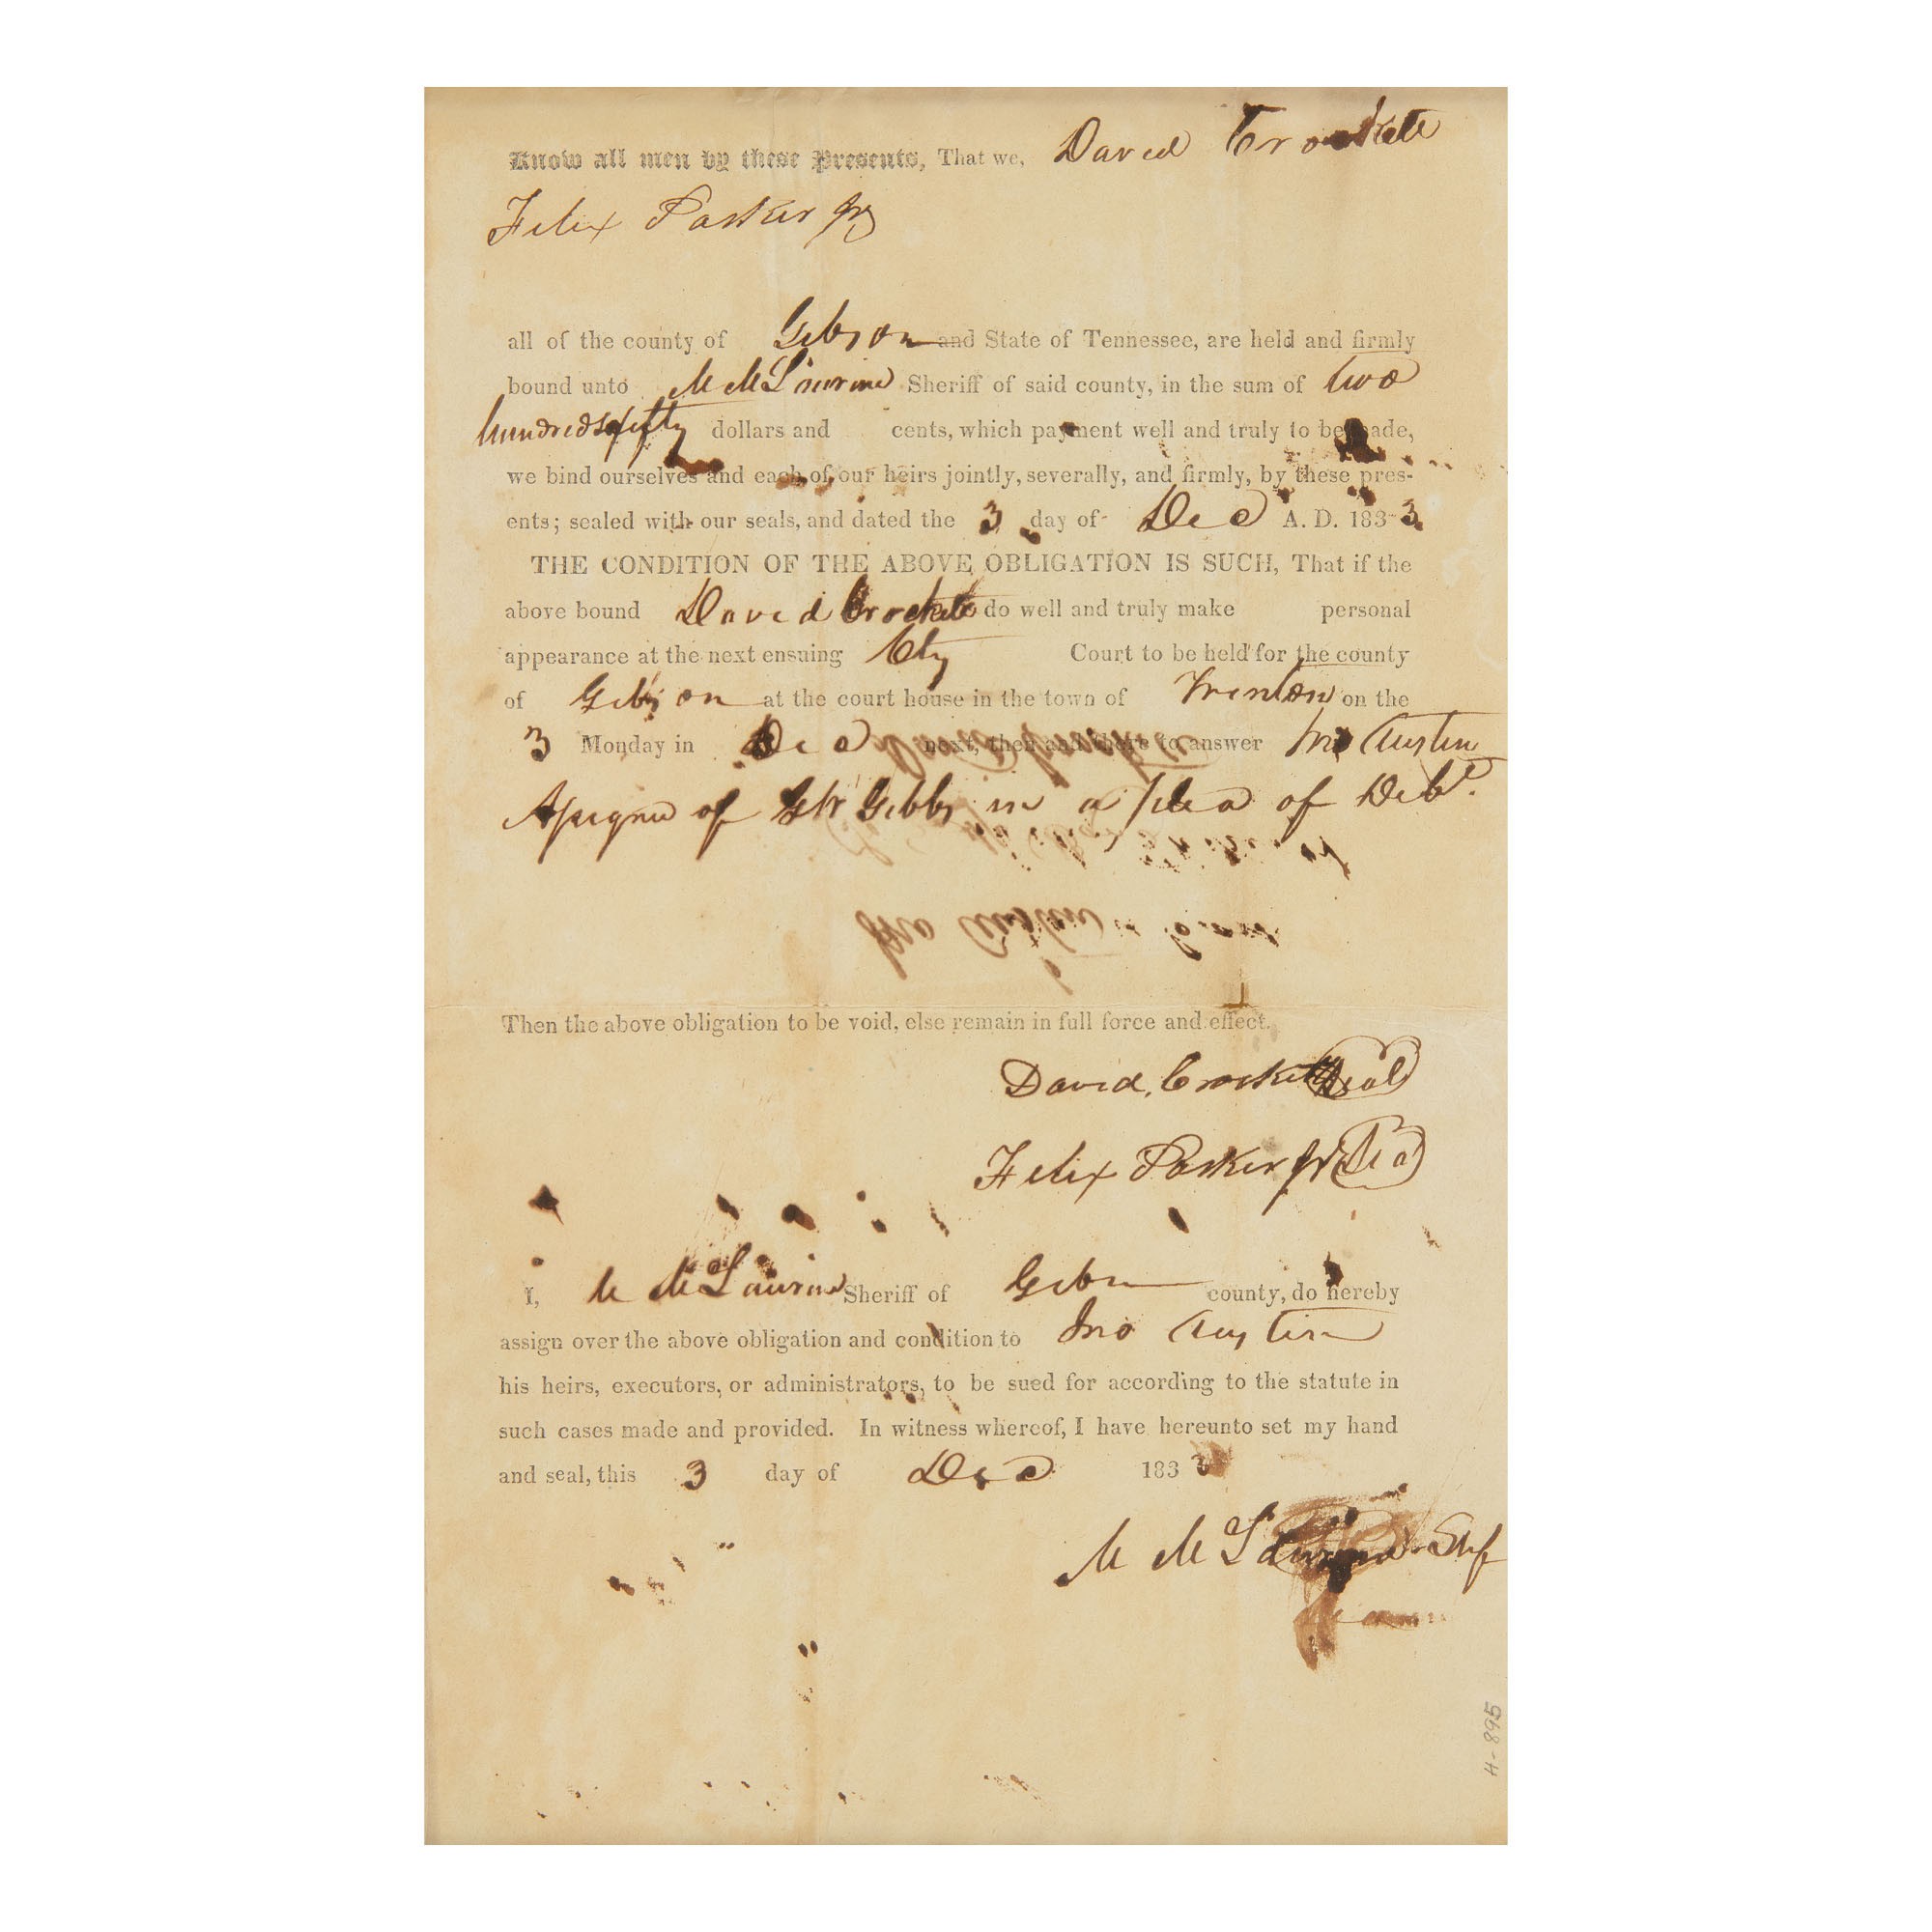 Know all men by these Presents, That we, David Crockett
Felix Parker Jr
all of the county of Gibson and State of Tennessee, are held and firmly
bound unto M McLaurine Sheriff of said county, in the sum of two
hundred & fifty dollars and cents, which payment well and truly to be made,
we bind ourselves and each of our heirs jointly, severally, and firmly, by these pres-
ents; sealed with our seals, and dated the 3 day of Dec A. D. 183-3
THE CONDITION OF THE ABOVE OBLIGATION IS SUCH, That if the
above bound David Crockett do well and truly make personal
appearance at the next ensuing Cty Court to be held for the county
of Gibson at the court house in the town of Trenton on the
3 Monday in Dec next, then and there to answer Jno Austin
Assignee of GW Gibbs in a plea of Debt.
Then the above obligation to be void, else remain in full force and effect.
David Crockett Seal
Felix Parker Jr
I, M McLaurine Sheriff of Gibson county, do hereby
assign over the above obligation and condition to Jno Austin
his heirs, executors, or administrators, to be sued for according to the statute in
such cases made and provided. In witness whereof, I have hereunto set my hand
and seal, this 3 day of Dec 1833
M McLaurine Shf
H-895